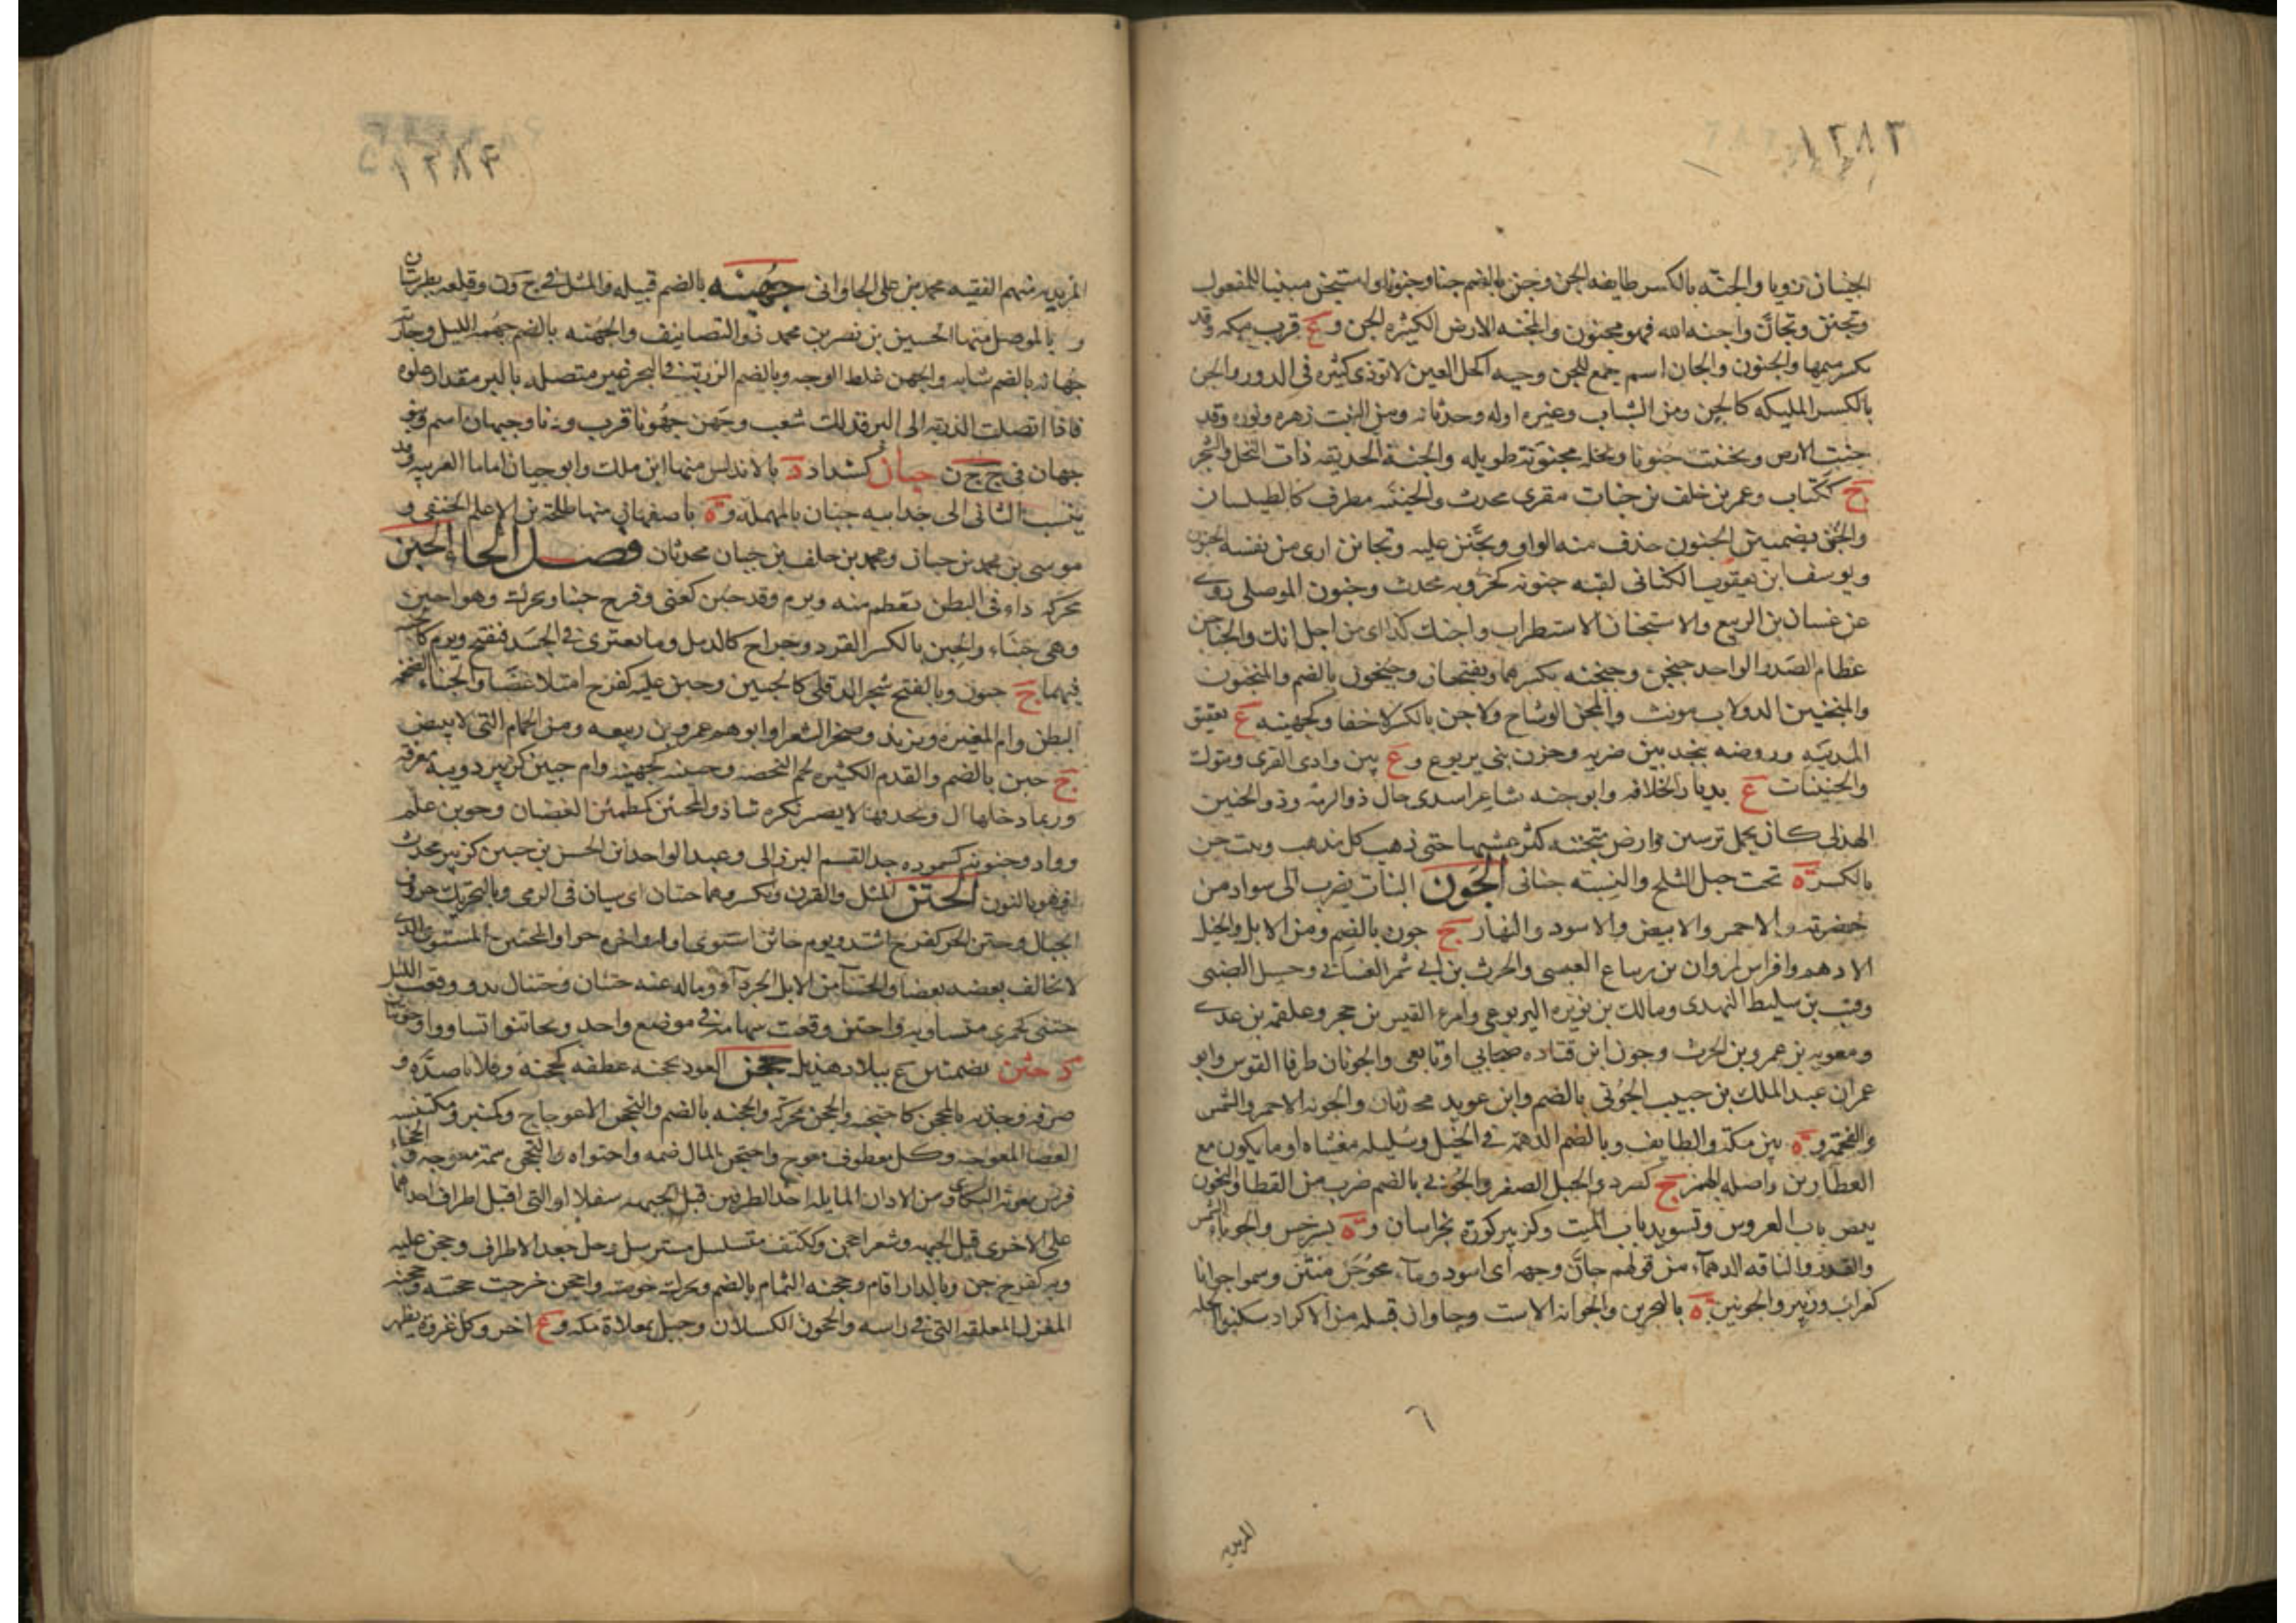 ١٢٨٣
الجنان ذويا والجنه بالكسر طايفه الجن وجن بالضم جنا وجنونا واستجن مبنيا للمفعول
وتجنن وتجان واجنه الله فهو مجنون والمجنه الارض الكثيره الجن و ع قرب مكه وقد
بكسر ميمها والجنون والجان اسم جمع للجن وحيه اكحل العين لا توذى كثيره فى الدور والجن
بالكسر المليكه كالجن ومن الشباب وغيره اوله وحدثانه ومن النبت زهره ونوره وقد
جنت الارض وتجننت جنونا ونخله مجنونه طويله والجنه الحديقه ذات النخل والشجر
ج ككتاب وعمر بن خلف بن جنات مقرى محدث والجنيه مطرف كالطيلسان
والجنن بضمتين الجنون حذف منه الواو وتجنن عليه وتجانن ارى من نفسه الجنون
ويوسف ابن يعقوب الكنانى لقبه جنونه كخروبه محدث وجنون الموصلى روى
عن غسان بن الربيع والاستجنان الاستطراب واجنك كذا اى من اجل انك والجناجن
عظام الصدر الواحد جنجن وجنجنه بكسرهما ويفتحان وجنجون بالضم والمنجنون
والمنجنين الدولاب مونث والمجن الوشاح ولا جن بالكسر لا خفا وكجهينه ع بعقيق
المدينه وروضه بنجد بين ضريه وحزن بنى يربوع و ع بين وادى القرى وتبوك
والجنينات ع بديار الخلافه وابو جنه شاعر اسدى خال ذو الرمه وذو المجنين
الهذلى كان يحمل ترسين وارض متجننه كثر عشبها حتى ذهب كل مذهب وبيت جن
بالكسر ة تحت جبل الثلج والنسبه جنانى الجون النبات يضرب الى سواد من
خضرته والاحمر والابيض والاسود والنهار ج جون بالضم ومن الابل والخيل
الادهم وافراس لمروان بن زنباع العبسى والحرث بن ابى شمر الغسانى وحسيل الضبى
وقتب بن سليط النهدى ومالك بن نويره اليربوعى وامرء القيس بن حجر وعلقمه بن عدى
ومعويه بن عمرو بن الحرث وجون ابن قتاده صحابى او تابعى والجونان طرفا القوس وابو
عمران عبد الملك بن حبيب الجونى بالضم وابن عوبد محدثان والجونه الاحمر والشمس
والفحمه و ة بين مكه والطايف وبالضم الدهمه فى الخيل وسليله مغشاه ادما يكون مع
العطارين واصله الهمز ج كصرد والجبل الصغير والجونى بالضم ضرب من القطا والتجون
تبيض باب العروس وتسويد باب الميت وكزبير كورة بخراسان و ة بسرخس والجونا الشمس
والقدر والناقه الدهماء من قولهم جان وجهه اى اسود وماء مجوجن منتن وسموا جوانا
كغراب وزبير والجونين ة بالبحرين والجوانه الاست وجاوان قبيله من الاكراد سكنوا الحله
٦
المزيديه
١٢٨٤
المزيديه منهم الفقيه محمد بن على الجاوانى جهينه بالضم قبيله والمثل فى ج ف ن وقلعه بطبرستان
و بالموصل منها الحسين بن نصر بن محمد ذو التصانيف والجهنه بالضم جهمه الليل وجاريه
جهانه بالضم شابه والجهن غلظ الوجه وبالضم الزريه فى البحر غير متصله بالبر مقدار غلوه
فاذا اتصلت الذريه الى البر فذلك شعب وجهن جهونا قرب ودنا وجيهان اسم ونهر
جهان فى ج ى ح ن جيان كشداد د بالاندلس منها ابن ملك وابو حيان اماما العربيه وقد
ينسب الثانى الى جد ابيه حيان بالمهمله و ة باصفهان منها طلحه بن الاعلم الحنفى و
موسى بن محمد بن جيان ومحمد بن خلف بن جيان محدثان فصل الحاء الحبن
محركه داء فى البطن يعظم منه ويرم وقد حبن كعنى وفرح حبنا ويحرك وهو احبن
وهى حبناء والحبن بالكسر القرد وخراج كالدمل وما يعترى فى الجسد فيقيح ويرم كالحبنه
فيهما ج حبون وبالفتح شجر الدفلى كالحبين وحبن عليه كفرح امتلا غضبا والحبناء الضخمه
البطن وام المغيره ويزيد وصخر الشعرا وابوهم عمرو بن ربيعه ومن الحمام التى لا تبيض
ج حبن بالضم والقدم الكثيره لحم البخصه وحبينه كجهينه وام حبين كزبير دويبه معرفه
وربما دخلها ال وبحذفها لا يصير نكره شاذ والمحبئن كمطمئن الغضبان وحوبن علم
وواد وحبونه كسموره جد القسم البرزالى وعبد الواحد ابن الحسن بن حبين كزبير محدث
او هو بالنون الحتن المثل والقرن ويكسر وهما حتنان اى سيان فى الرمى وبالتحريك حروف
الجبال وحتن الحر كفرح اشتد ويوم حاتن استوى اوله واخره حرا والمحتتن المستوى الذى
لا يخالف بعضه بعضا والحتناء من الابل الجرداء وما له عنه حتنان وحتنال بدو وقعت النبل
حتنى كجمزى متساويه واحتتن وقعت سهامه فى موضع واحد وتحاتنوا تساووا وحوتنان
د حثن بضمتين ع ببلاد هذيل حجن العود يحجنه عطفه كحجنه وفلانا صده و
صرفه وجذبه بالمحجن كاحتجنه والحجن محركه والحجنه بالضم والتحجن الاعوجاج وكمنبر ومكنسه
العصا المعوجه وكل معطوف معوج واحتجن المال ضمه واحتواه والتحجين سمه معوجه والحجناء
فرس معويه البكائى ومن الاذان المايله احد الطرفين قبل الجبهه سفلا او التى اقبل اطراف احداهما
على الاخرى قبل الجبهه وشعر احجن وككتف متسلسل مسترسل رجل جعد الاطراف وحجن عليه
وبه كفرح ضن وبالدار اقام وحجنه الثمام بالضم ويحرك خوصته واحجن خرجت حجنته وحجنه
المغزل المعلقه التى فى راسه والحجون الكسلان وجبل بمعلاة مكه و ع اخر وكل غزوة يظهر